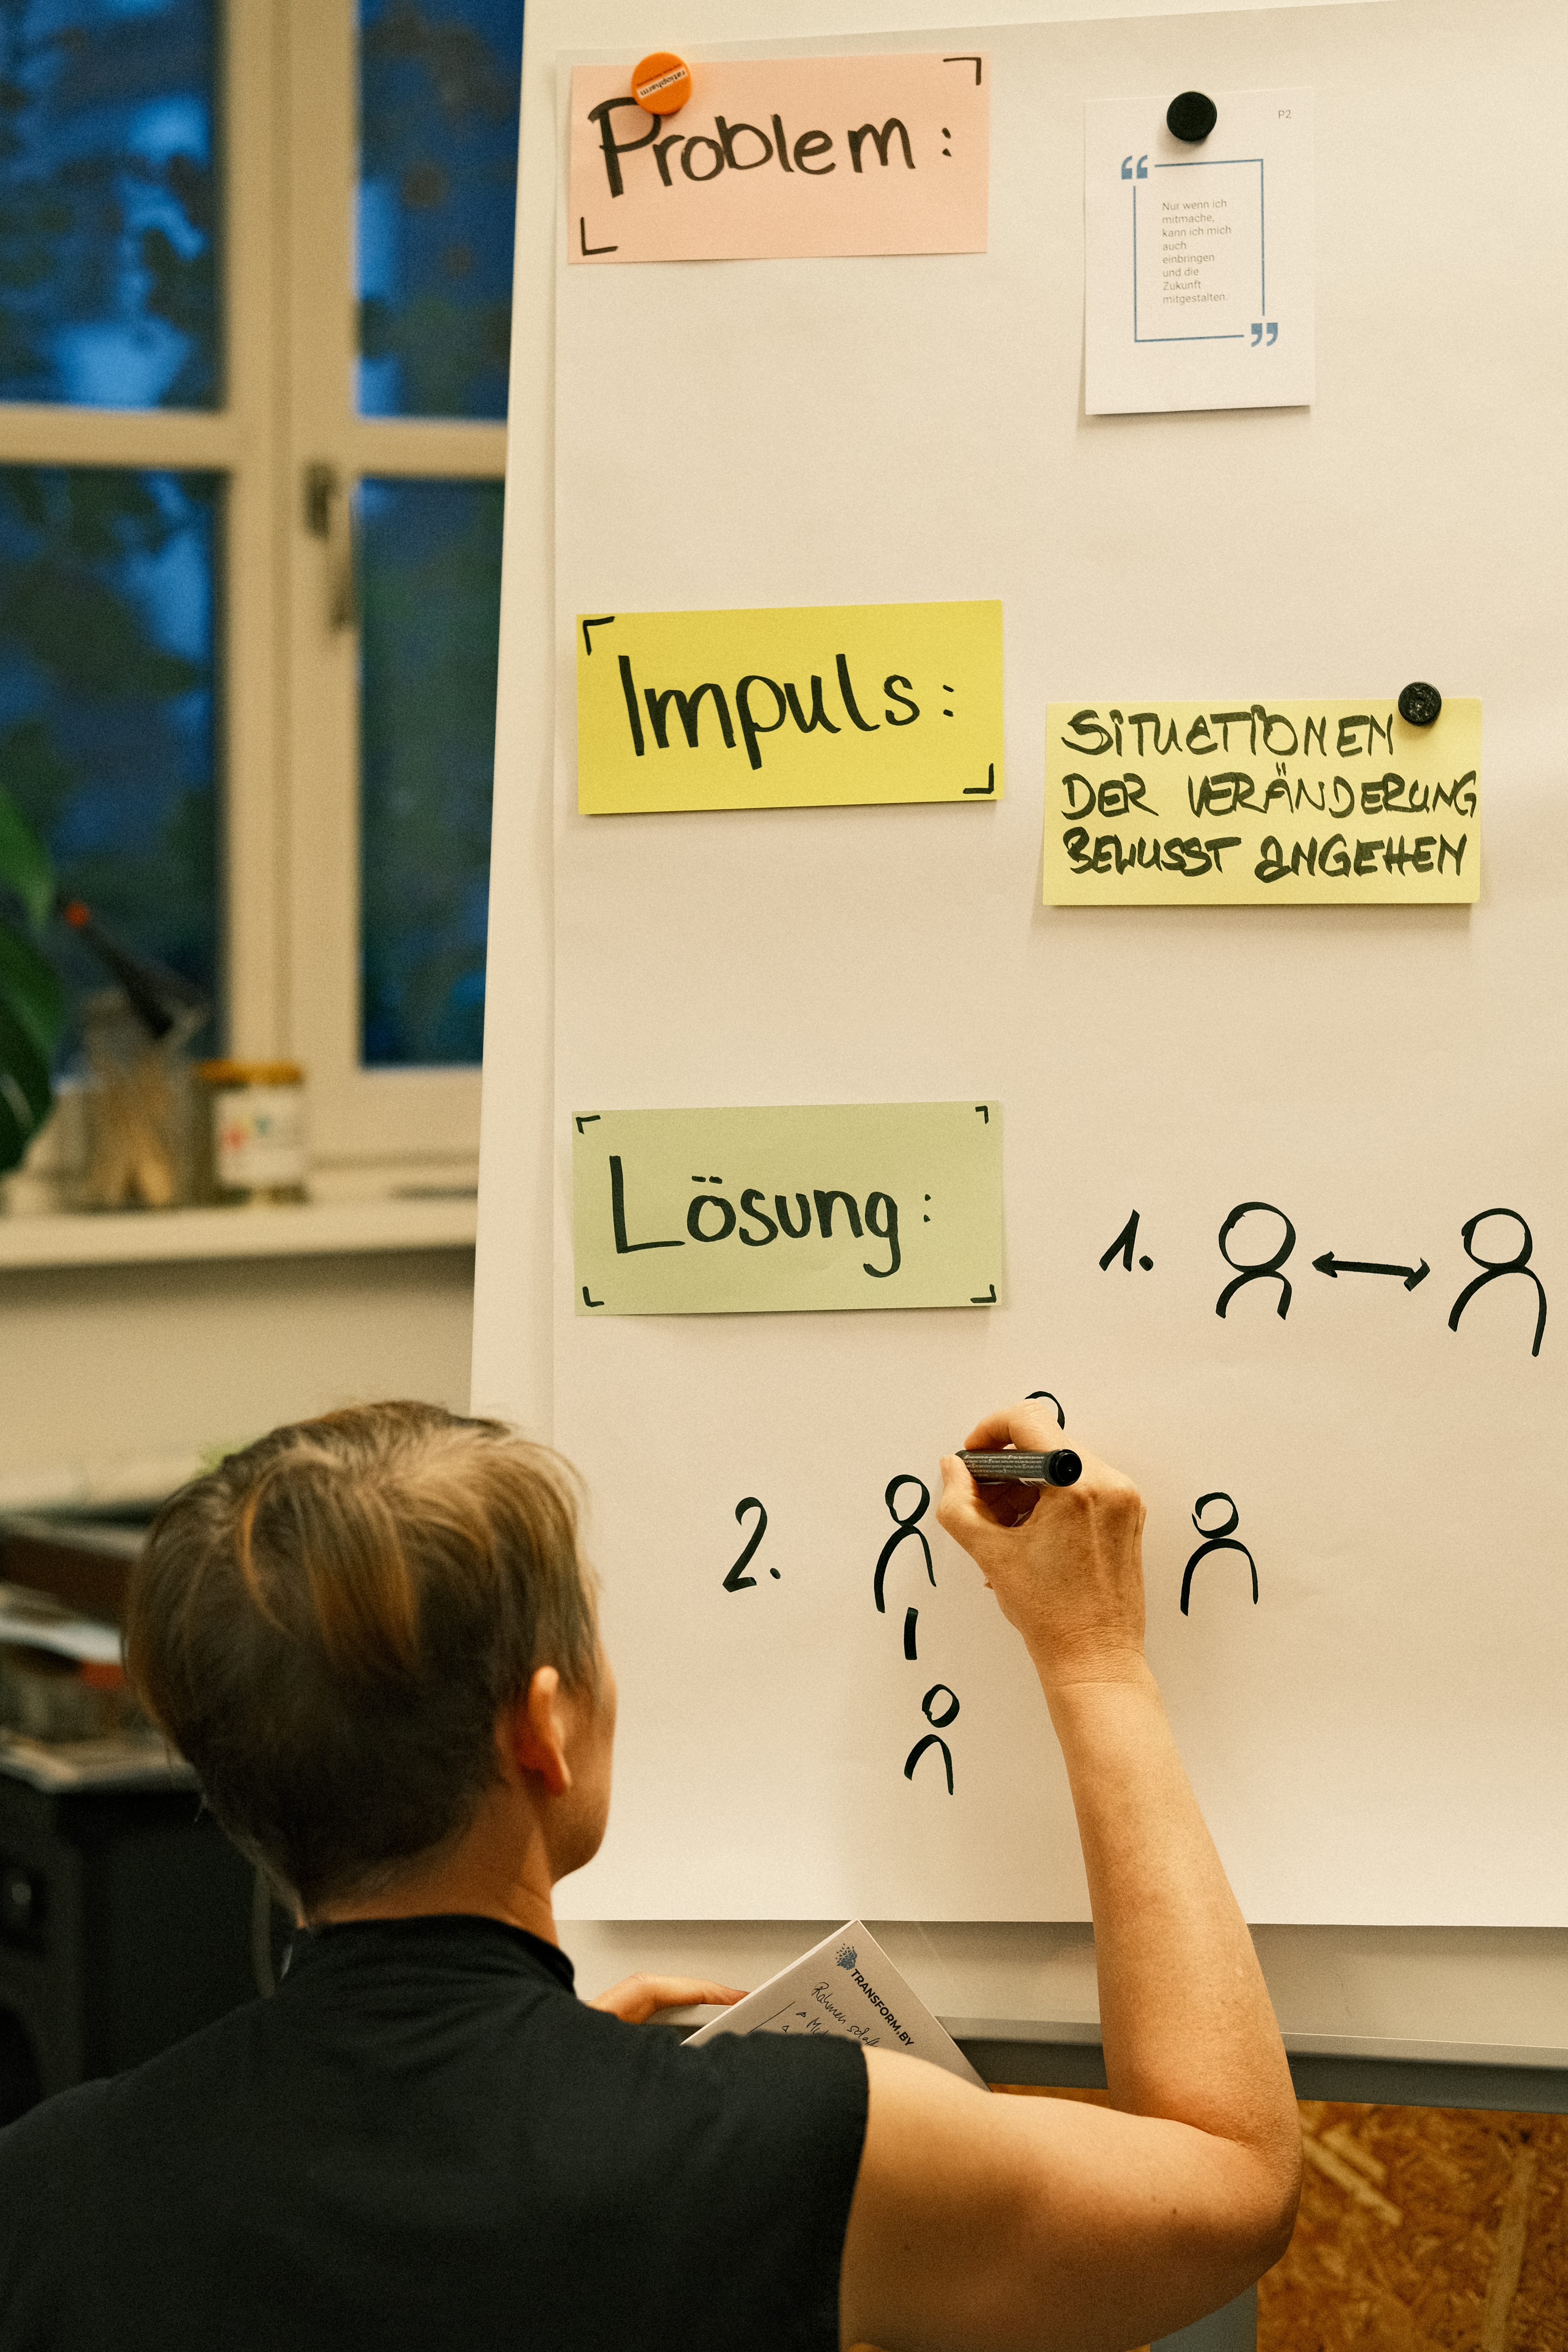 Problem:
ratiopharm
P2
“
Nur wenn ich
mitmache,
kann ich mich
auch
einbringen
und die
Zukunft
mitgestalten.
”
Impuls:
SITUATIONEN
DER VERÄNDERUNG
BEWUSST ANGEHEN
Lösung:
1.
2.
TRANSFORM.BY
Rahmen